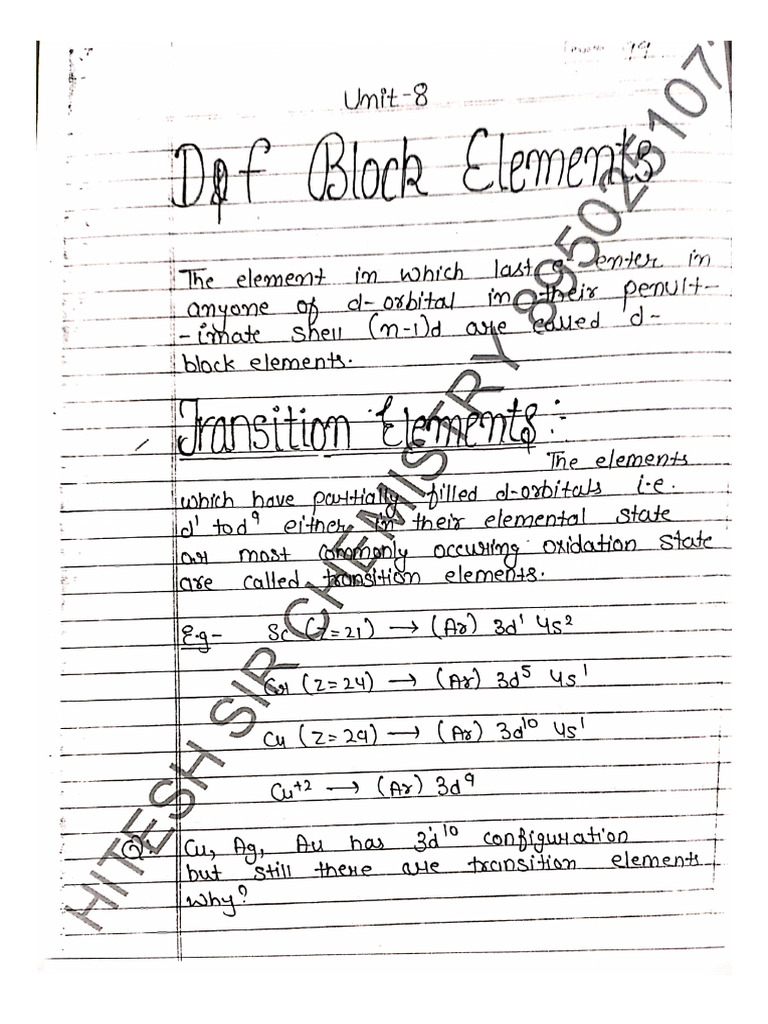 99
Unit-8
D & f Block Elements
The element in which last e- enter in
anyone of d-orbital in their penult-
-imate shell (n-1)d are called d-
block elements.
Transition Elements:-
The elements
which have partially filled d-orbitals i.e.
d¹ to d⁹ either in their elemental state
or most commonly occuring oxidation state
are called transition elements.
E.g- Sc (Z=21) → (Ar) 3d¹ 4s²
Cr (Z=24) → (Ar) 3d⁵ 4s¹
Cu (Z=29) → (Ar) 3d¹⁰ 4s¹
Cu⁺² → (Ar) 3d⁹
Q. Cu, Ag, Au has 3d¹⁰ configuration
but still there are transition elements
why?
HITESH SIR CHEMISTRY 895025107